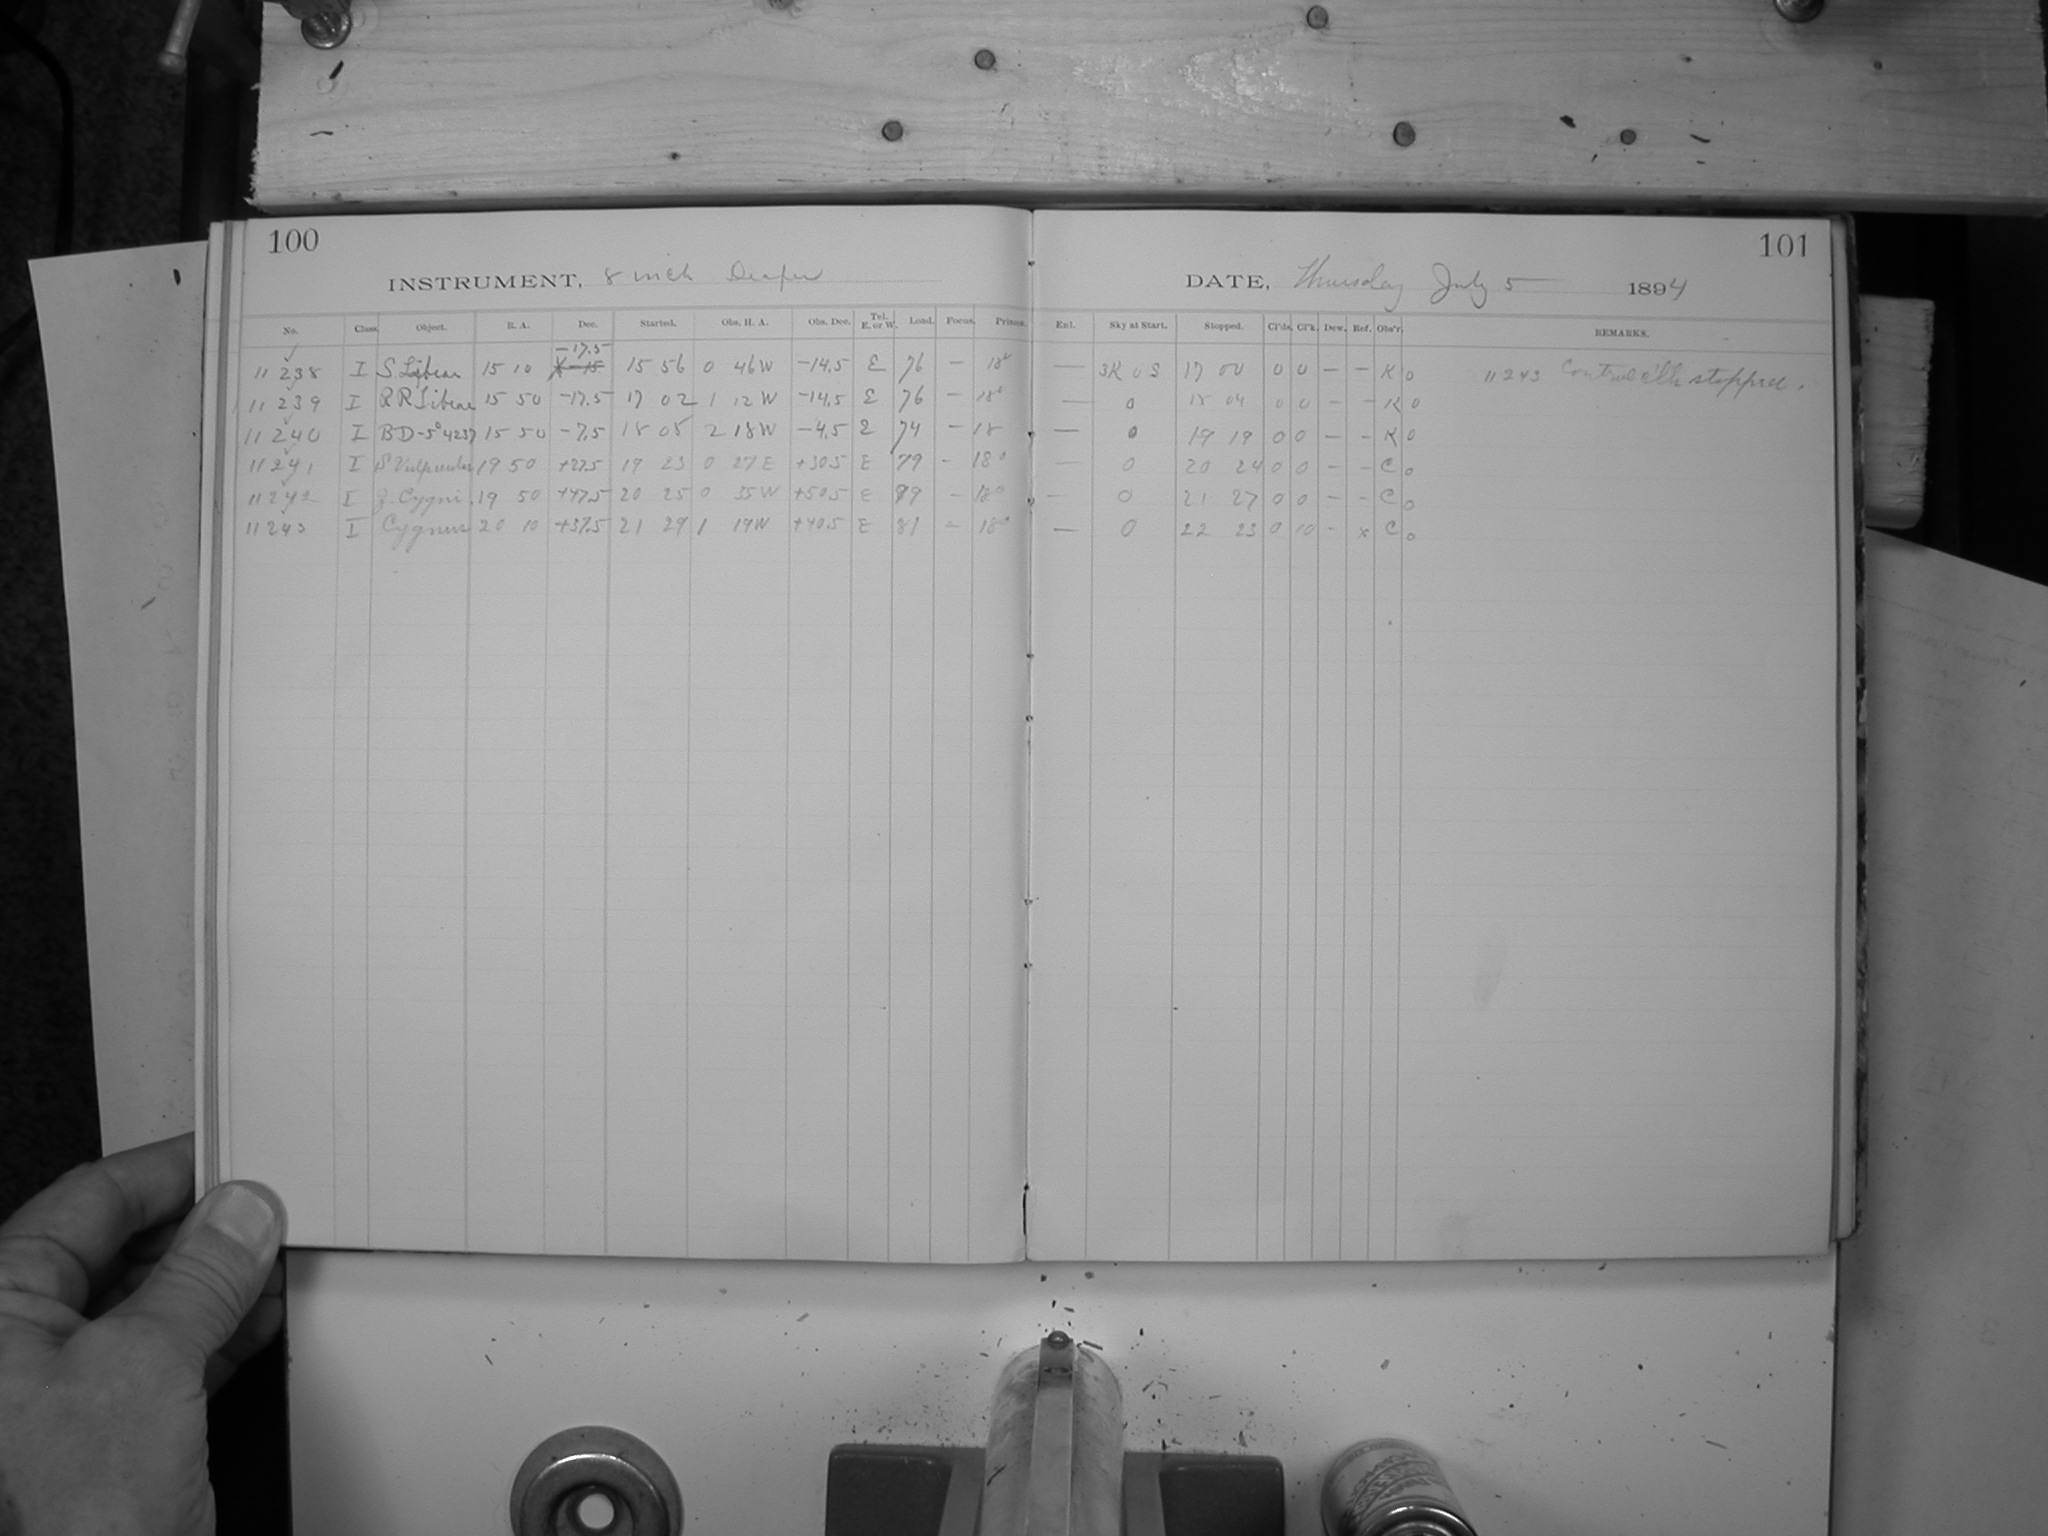 100
101
INSTRUMENT, 8 inch Draper
DATE, Thursday July 5 1894
No. Class. Object. R. A. Dec. Started. Obs. H. A. Obs. Dec. Tel. E. or W. Load. Focus. Prisms. Enl. Sky at Start. Stopped. Cl'ds. Cl'k. Dew. Ref. Obs'r. REMARKS.
-17.5
11 238 I S Librae 15 10 -15 15 56 0 46 W -14.5 E 76 — 18° — 3K 0 S 17 00 0 0 — — K 0 11243 Control clk stopped.
11 239 I RR Librae 15 50 -17.5 17 02 1 12 W -14.5 E 76 — 18° — 0 18 04 0 0 - - K 0
11 240 I BD -5° 4237 15 50 -7.5 18 08 2 18 W -4.5 E 74 — 18 — 0 19 19 0 0 — — K 0
11 241 I S Vulpeculae 19 50 +27.5 19 23 0 27 E +30.5 E 79 - 18° — 0 20 24 0 0 - - C 0
11 242 I Z. Cygni. 19 50 +47.5 20 25 0 35 W +50.5 E 79 - 18° — 0 21 27 0 0 - - C 0
11 243 I Cygnus 20 10 +37.5 21 29 1 19 W +40.5 E 81 - 18° — 0 22 23 0 10 - x C 0